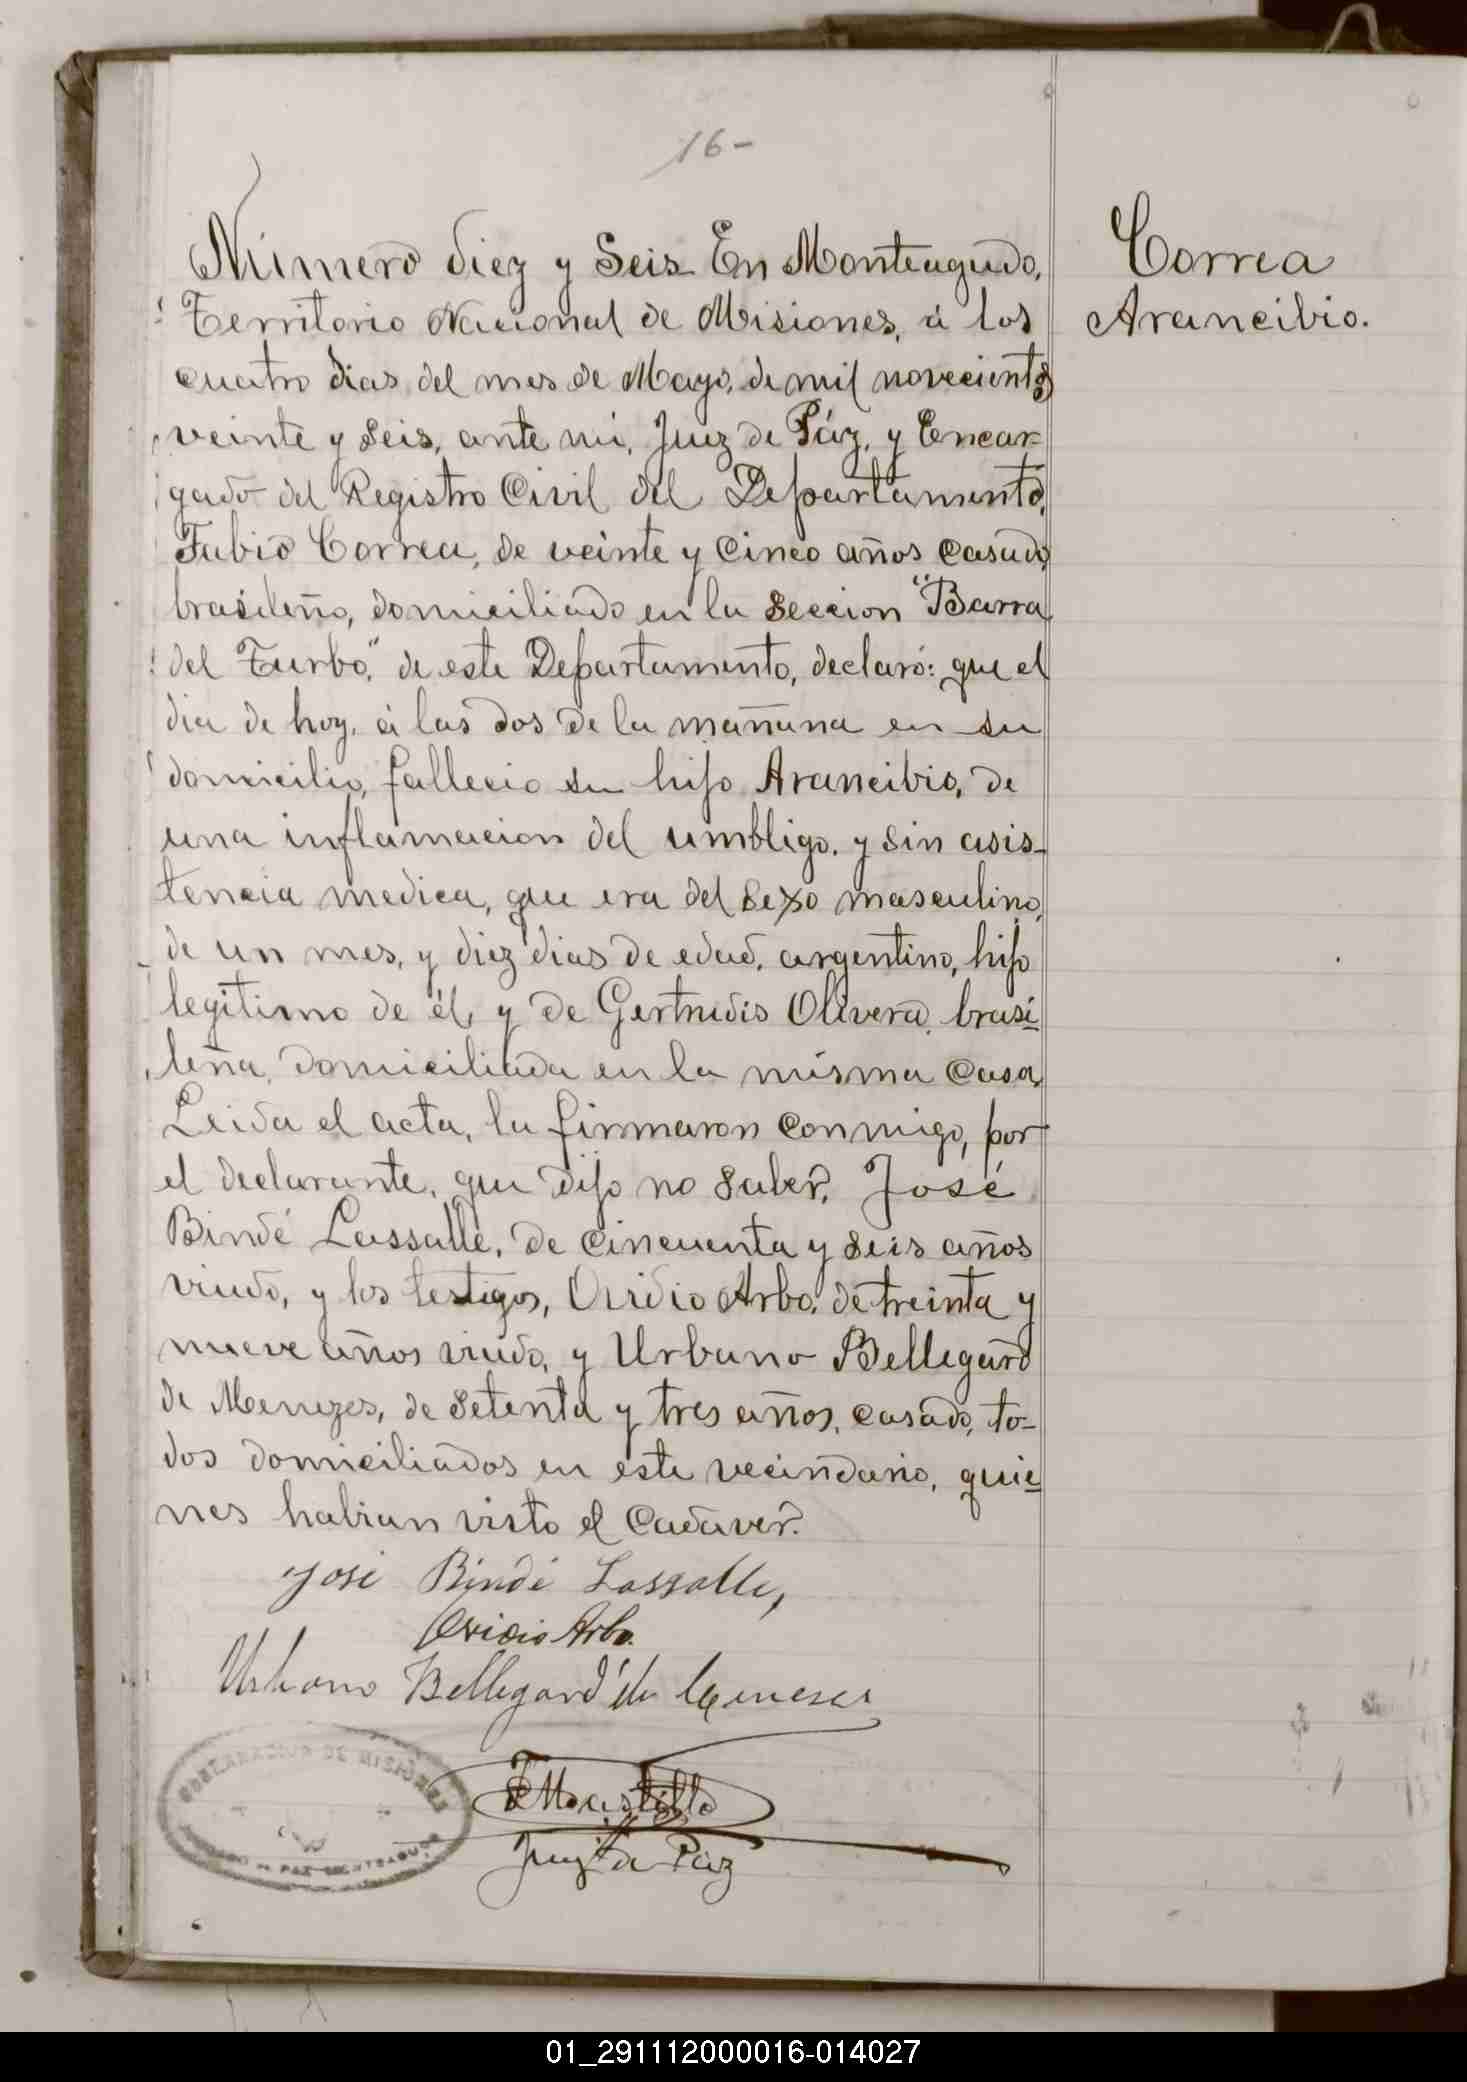 16-
Número diez y Seis En Monteagudo,
Territorio Nacional de Misiones, á los
cuatro dias del mes de Mayo, de mil novecientos
veinte y seis, ante mi, Juez de Páz, y Encar-
gado del Registro Civil del Departamento,
Fabio Correa, de veinte y cinco años casado,
brasileño, domiciliado en la Seccion "Barra
del Turbo," de este Departamento, declaró: que el
dia de hoy, á las dos de la mañana en su
domicilio, fallecio su hijo Arancibio, de
una inflamacion del umbligo, y sin asis-
tencia medica, que era del sexo masculino,
de un mes, y diez dias de edad, argentino, hijo
legitimo de él, y de Gertrudis Olivera, brasi-
leña, domiciliada en la misma casa,
Leida el acta, la firmaron conmigo, por
el declarante, que dijo no saber, José
Bindé Lassalle, de cincuenta y seis años
viudo, y los testigos, Ovidio Arbo, de treinta y
nueve años viudo, y Urbano Bellegard
de Menezes, de setenta y tres años, casado, to-
dos domiciliados en este vecindario, quie-
nes habian visto el cadáver.
José Bindé Lassalle,
Ovidio Arbo.
Urbano Bellegard de Meneses
Juez de Paz
GOBERNACION DE MISIONES
JUZGADO DE PAZ MONTEAGUDO
Correa
Arancibio.
01_291112000016-014027